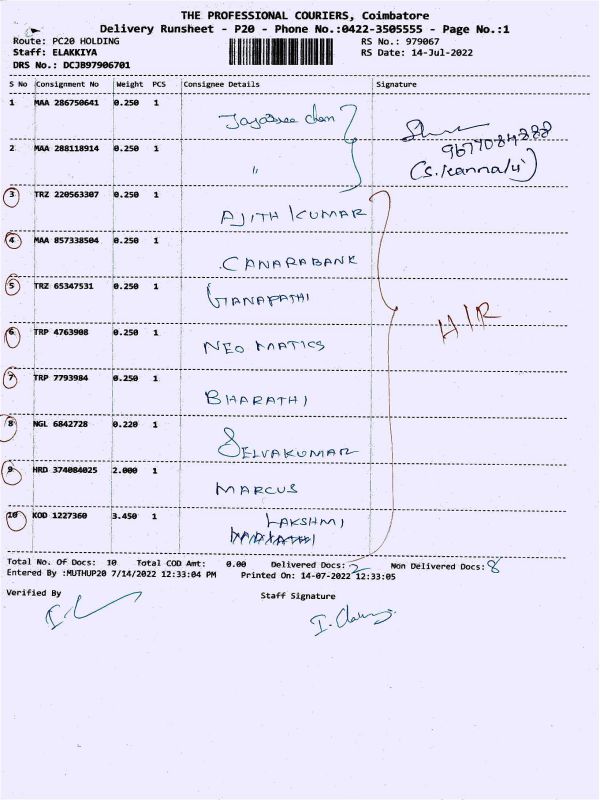 THE PROFESSIONAL COURIERS, Coimbatore
Delivery Runsheet - P20 - Phone No.:0422-3505555 - Page No.:1
Route: PC20 HOLDING
RS No.: 979067
Staff: ELAKKIYA
RS Date: 14-Jul-2022
DRS No.: DCJB97906701
S No Consignment No Weight PCS Consignee Details Signature
1 MAA 286750641 0.250 1
2 MAA 288118914 0.250 1 "
9677084888
3 TRZ 220563307 0.250 1 AJITH KUMAR
4 MAA 857338504 0.250 1 CANARABANK
5 TRZ 65347531 0.250 1 GANAPATHI
H/R
6 TRP 4763908 0.250 1 NEO MATICS
7 TRP 7793984 0.250 1 BHARATHI
8 NGL 6842728 0.220 1 SELVAKUMAR
9 HRD 374084025 2.000 1 MARCUS
10 KOD 1227360 3.450 1 LAKSHMI
Total No. Of Docs: 10 Total COD Amt: 0.00 Delivered Docs: 2 Non Delivered Docs: 8
Entered By :MUTHUP20 7/14/2022 12:33:04 PM Printed On: 14-07-2022 12:33:05
Verified By Staff Signature